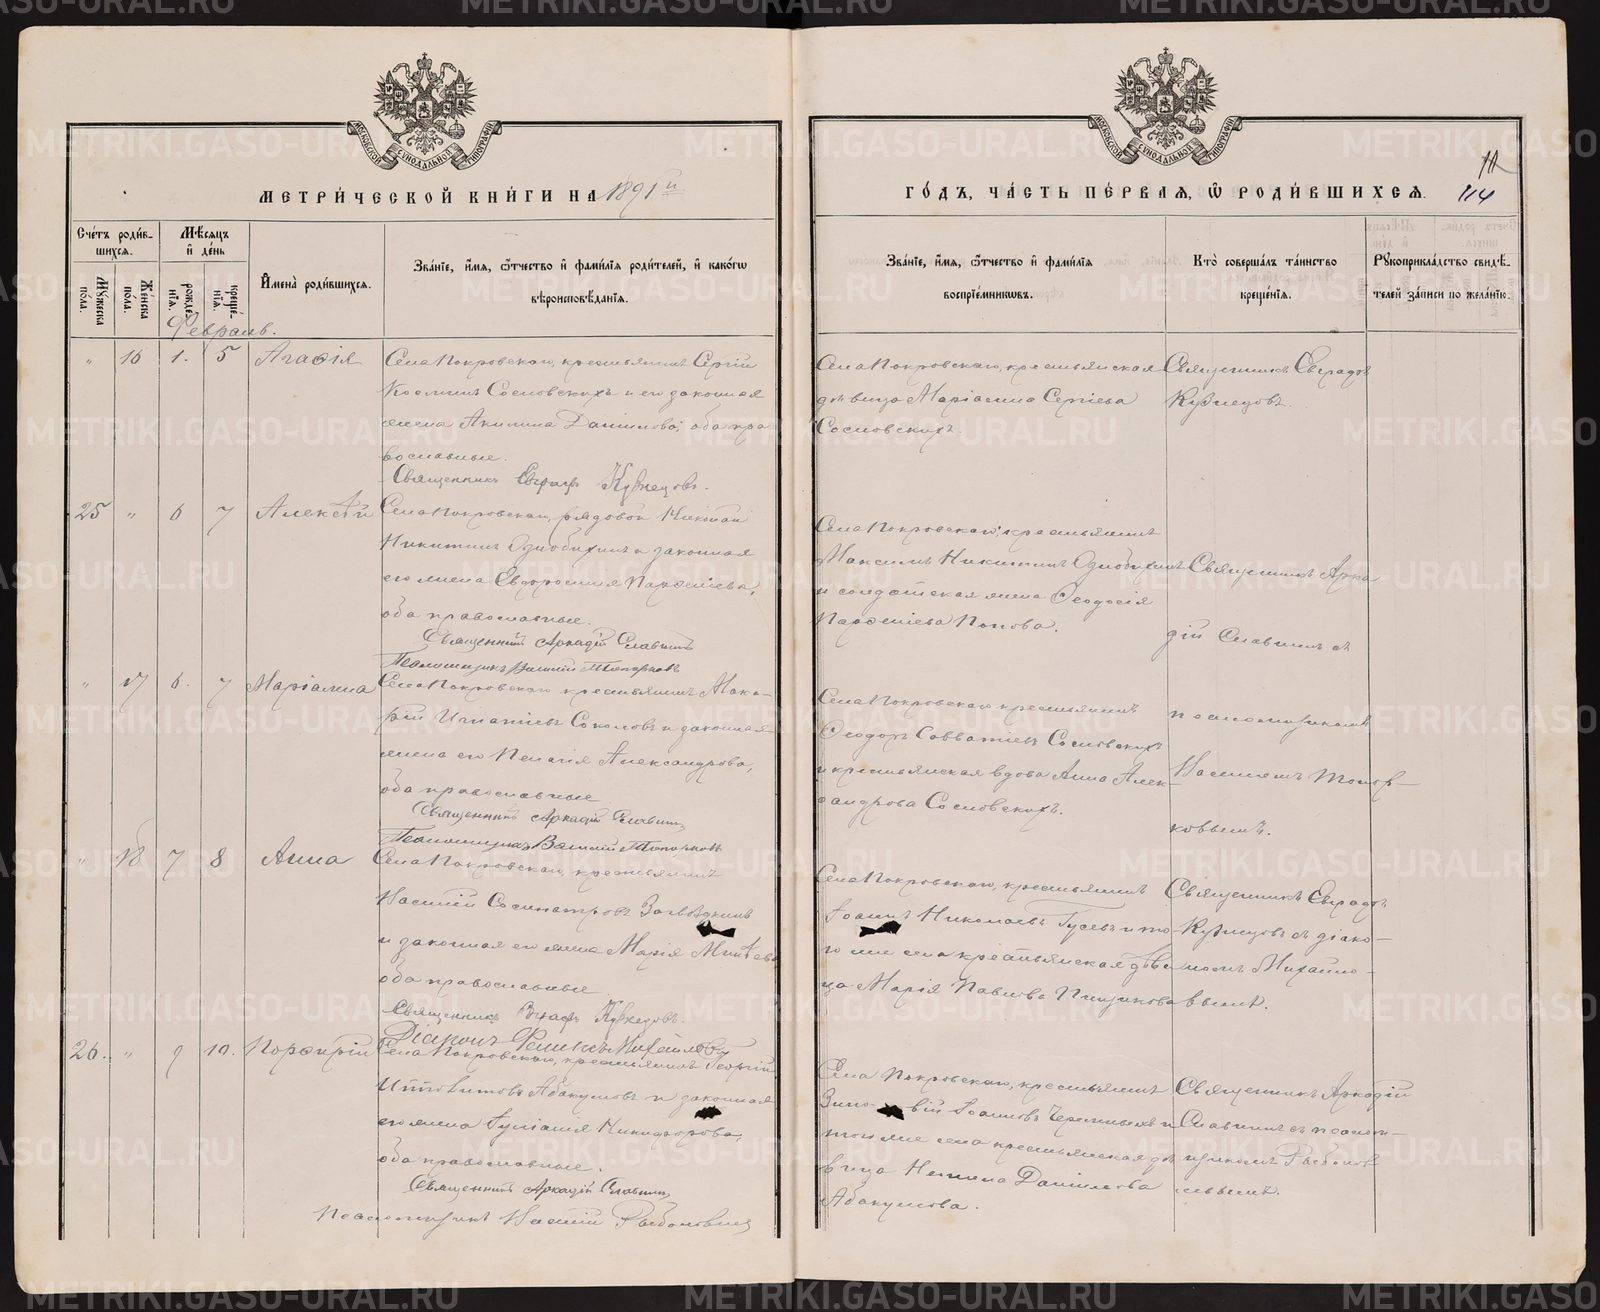 МОСКОВСКОЙ СУНОДАЛЬНОЙ ТИПОГРАФІИ
МЕТРИ́ЧЕСКОЙ КНИ́ГИ НА 1891 й
Сче́тъ роди́в-
шихся.
Мѣ́сяцъ
и҆ де́нь
Му́жеска
по́ла.
Же́нска
по́ла.
рожде́-
нїя.
креще́-
нїя.
И҆мена̀ роди́вшихся.
Зва́нїе, и҆́мя, ѻ҆́тчество и҆ фами́лїя роди́телей, и҆ како́гѡ
вѣроисповѣ́данїя.
Февраль.
" 16 1. 5 Агаѳія
Села Покровскаго, крестьянинъ Сергій
Косминъ Сосновскихъ и его законная
жена Акилина Данилова, оба пра
вославные.
Священникъ Евграфъ Кузнецовъ.
25 " 6 7 Алексѣй
Села Покровскаго, рядовой Николай
Никитинъ Ознобихинъ и законная
его жена Евдоросинія Парѳеніева,
оба православные.
Священникъ Аркадій Славнинъ
Псаломщикъ Василій Топорковъ
" 17 6. 7 Маріанна
Села Покровскаго крестьянинъ Мака-
рій Игнатіевъ Соколовъ и законная
жена его Пелагія Александрова,
оба православные
Священникъ Аркадій Славнинъ
Псаломщикъ Василій Топорковъ
" 18 7. 8 Анна
Села Покровскаго, крестьянинъ
Василій Сосипатровъ
и законная его жена Марія
оба православные
Священникъ Евграфъ Кузнецовъ.
Діаконъ Михайловъ
26. " 9 10. Порфирій
Села Покровскаго, крестьянинъ Георгій
Абакумовъ и законная
его жена Іуліанія Никифорова,
оба православные.
Священникъ Аркадій Славнинъ
Псаломщикъ Василій
МОСКОВСКОЙ СУНОДАЛЬНОЙ ТИПОГРАФІИ
ГО́ДЪ, ЧА́СТЬ ПЕ́РВАЯ, Ѡ҆ РОДИ́ВШИХСЯ.
114
Зва́нїе, и҆́мя, ѻ҆́тчество и҆ фами́лїя
воспрїе́мникѡвъ.
Кто̀ соверша́лъ та́инство
креще́нїя.
Рꙋкоприкла́дство свидѣ́-
телей за́писи по жела́нїю.
Села Покровскаго, крестьянская
дѣвица Маріанна Сергіева
Сосновскихъ.
Священникъ Евграфъ
Кузнецовъ.
Села Покровскаго, крестьянинъ
Максимъ Никитинъ Ознобихинъ
и солдатская жена Ѳеодосія
Парѳеніева Попова.
Священникъ Арка
дій Славнинъ съ
Села Покровскаго крестьянинъ
Ѳеодоръ Савватіевъ Сосновскихъ
и крестьянская вдова Анна Алек-
сандрова Сосновскихъ.
псаломщикомъ
Василіемъ Топор-
ковымъ.
Села Покровскаго, крестьянинъ
Іоаннъ Николаевъ Гусевъ и то-
го же села крестьянская дѣви
ца Марія Павлова
Священникъ Евграфъ
Кузнецовъ съ діако-
номъ Михайло-
вымъ.
Села Покровскаго, крестьянинъ
Зино-вій Іоанновъ Черемныхъ и
того же села крестьянская дѣ
вица Данилова
Абакумова.
Священникъ Аркадій
Славнинъ съ псалом-
щикомъ
METRIKI.GASO-URAL.RU